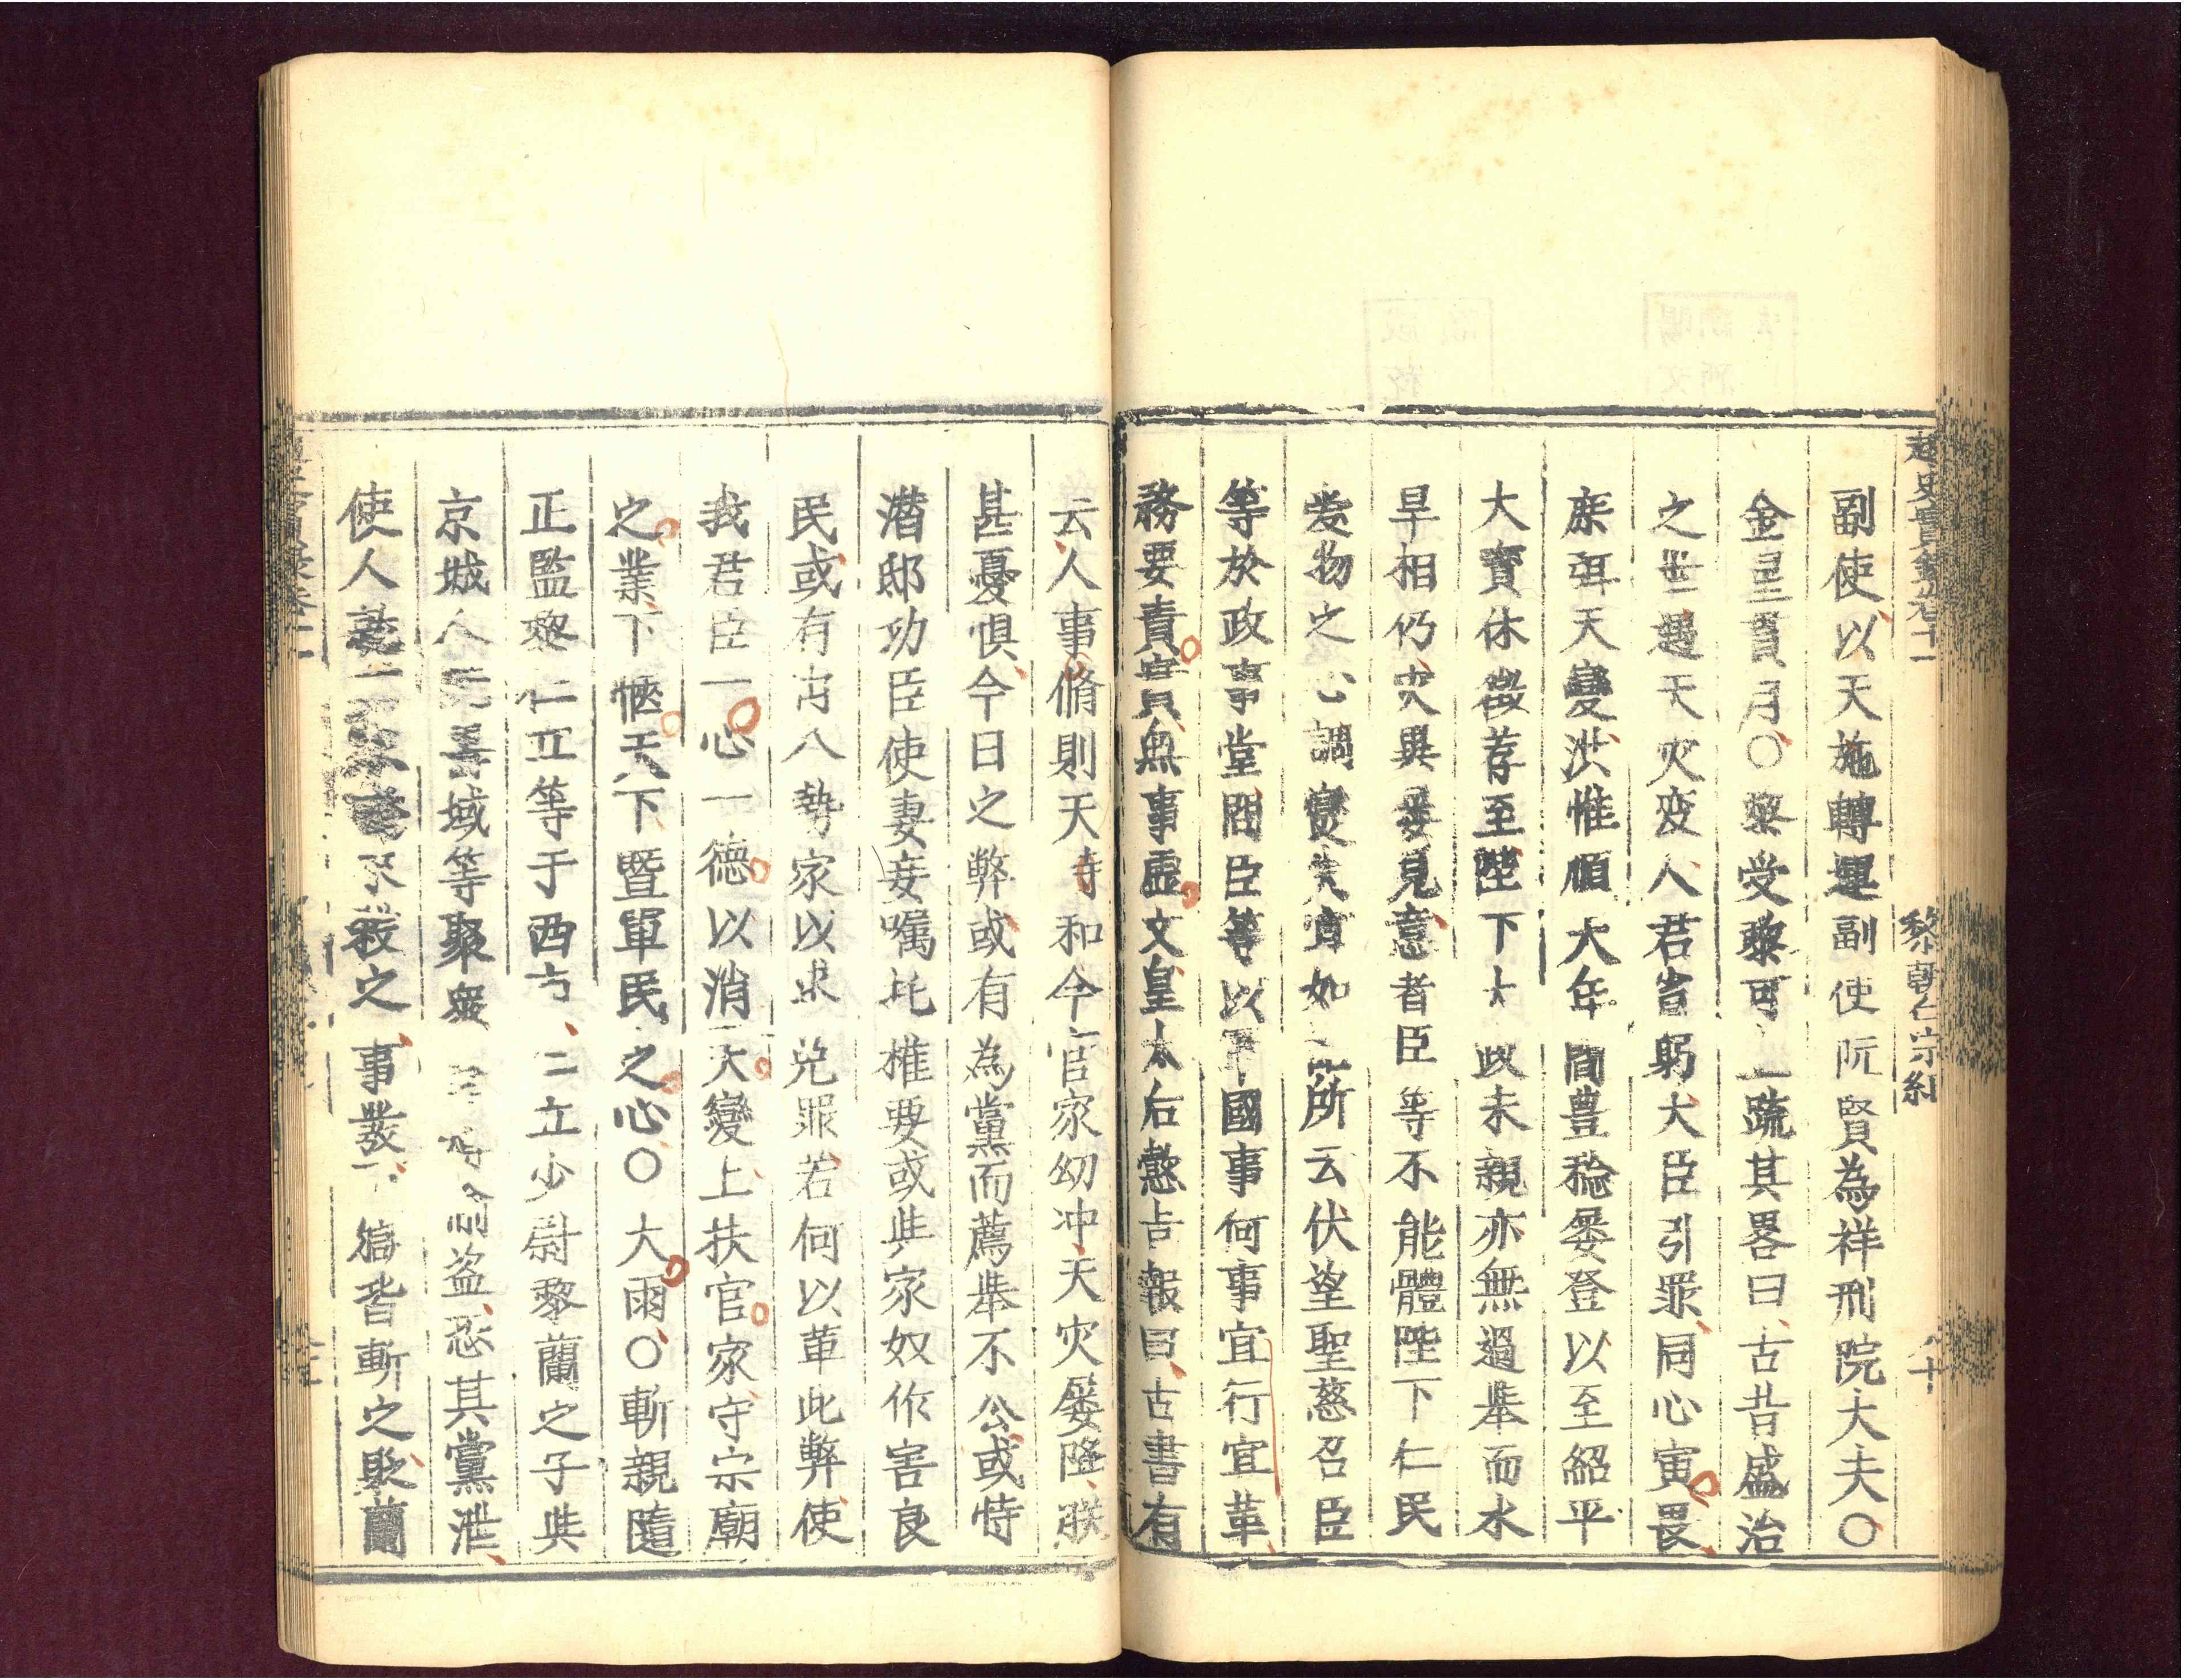 越史實錄卷十一 黎朝仁宗紀 八十
副使以天施轉運副使阮賢為祥刑院大夫〇
金星貫月〇黎受黎可上疏其畧曰古昔盛治
之世遇天灾变人君皆躬大臣引罪同心寅畏
庶弭天變洪惟順天年間豊稔屡登以至紹平
大寶休徵荐至陛下大政未親亦無過舉而水
旱相仍灾異晏見意者臣等不能體陛下仁民
爱物之心調燮失宜如之所云伏望聖慈召臣
等於政事堂問臣等以軍國事何事宜行宜革
務要責實無事虛文皇太后懿旨報曰古書有
云人事脩則天時和今官家幼冲天灾屡降朕
甚憂惧今日之弊或有為黨而薦舉不公或恃
潜邸功臣使妻妾囑托権要或典家奴作害良
民或有出入勢家以求免罪若何以革此弊使
我君臣一心一德以消天變上扶官家守宗廟
之業下愜天下暨軍民之心〇大雨〇斬親隨
正監黎仁立等于西市仁立少尉黎蘭之子典
京城人阮善域等聚衆 盗恐其黨泄
使人 殺之事發下獄皆斬之貶蘭